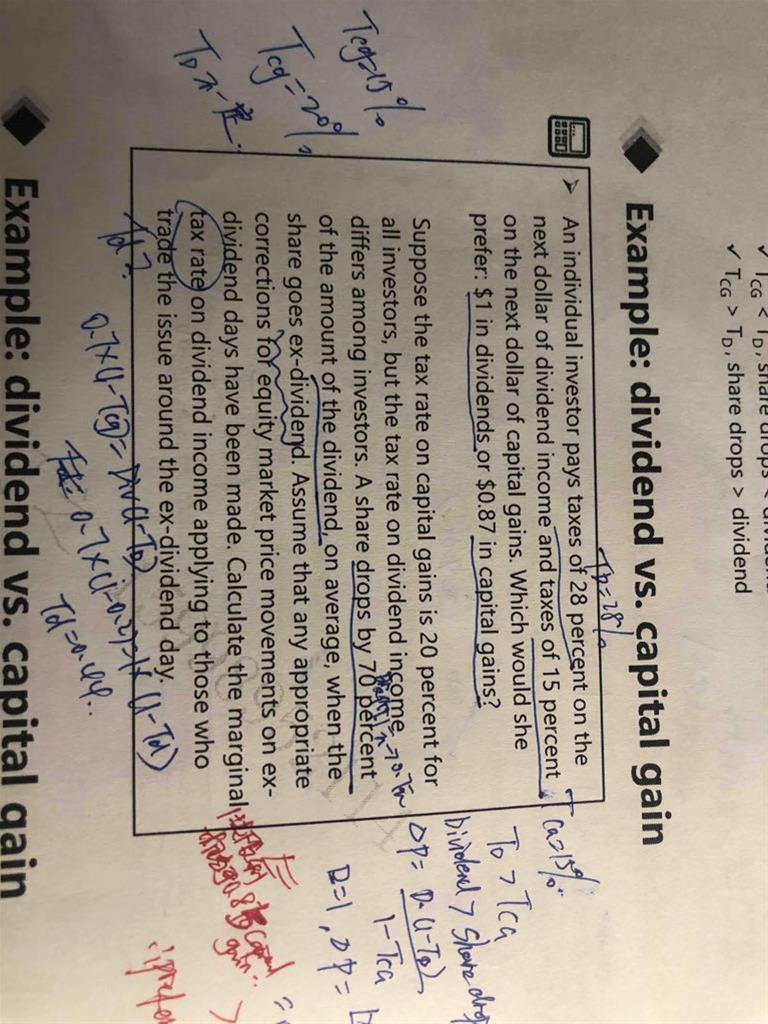 ✓ T_CG < T_D, share drops <
✓ T_CG > T_D, share drops > dividend
Example: dividend vs. capital gain
T_D=28%
➤ An individual investor pays taxes of 28 percent on the
next dollar of dividend income and taxes of 15 percent
on the next dollar of capital gains. Which would she
prefer: $1 in dividends or $0.87 in capital gains?
Suppose the tax rate on capital gains is 20 percent for
all investors, but the tax rate on dividend income
differs among investors. A share drops by 70 percent
of the amount of the dividend, on average, when the
share goes ex-dividend. Assume that any appropriate
corrections for equity market price movements on ex-
dividend days have been made. Calculate the marginal
tax rate on dividend income applying to those who
trade the issue around the ex-dividend day.
T_CG=15%
T_D > T_CG
Dividend > Share drop
ΔP= D×(1-T_D)
1-T_CG
D=1, ΔP=
Tcg=15%
Tcg=20%
Td?
T_d=0.44
Example: dividend vs. capital gain